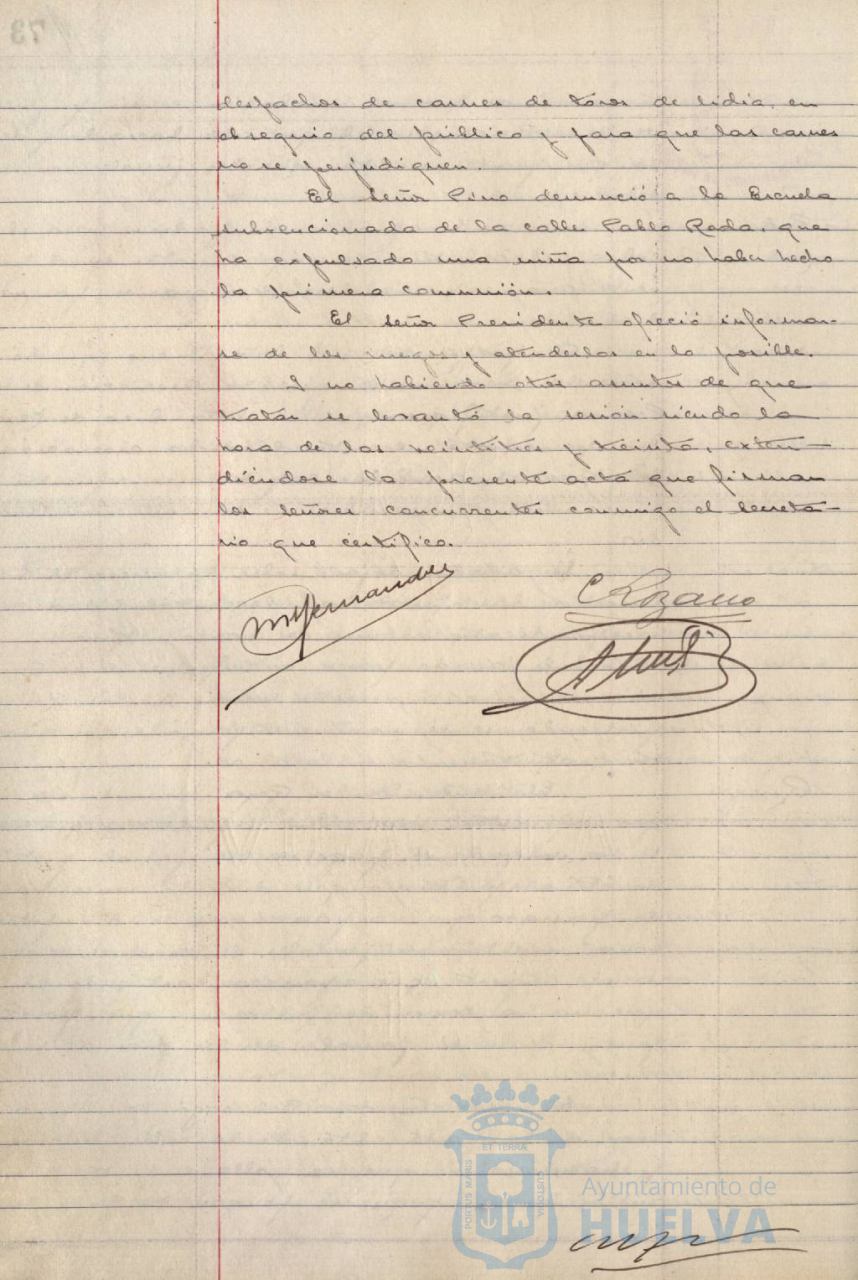 despachos de carnes de toros de lidia, en
obsequio del público y para que las carnes
no se perjudiquen.
El señor Pino denunció a la Escuela
subvencionada de la calle Pablo Rada, que
ha expulsado una niña por no haber hecho
la primera comunión.
El señor Presidente ofreció informar-
se de los ruegos y atenderlos en lo posible.
Y no habiendo otros asuntos de que
tratar se levantó la sesión siendo la
hora de las veintitres y treinta, exten-
diéndose la presente acta que firman
los señores concurrentes conmigo el Secreta-
rio que certifico.
Hernandez
C Lozano
PORTUS MARIS ET TERRAE CUSTODIA
Ayuntamiento de
HUELVA
73